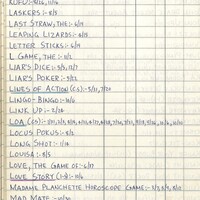 KUFU:-8/16, 11/16
LASKERS:- 8/5
LAST STRAW, THE:- 6/19
LEAPING LIZARDS:- 6/5
LETTER STICKS:- 6/9
L GAME, THE:- 11/2
LIAR'S DICE:- 3/3, 11/7
LIAR'S POKER:- 2/2
LINES OF ACTION (CS):- 5/11, 7/10
LINGO-BINGO:- 11/6
LINK UP:- 2/26
LOA (CS):-
LOCUS POKUS:- 8/2
LONG SHOT:- 1/24
LOUISA:- 8/5
LOVE, THE GAME OF:- 6/17
LOVE STORY (1-3): 11/6
MADAME PLANCHETTE HOROSCOPE GAME:-
MAD MATE:- 10/30